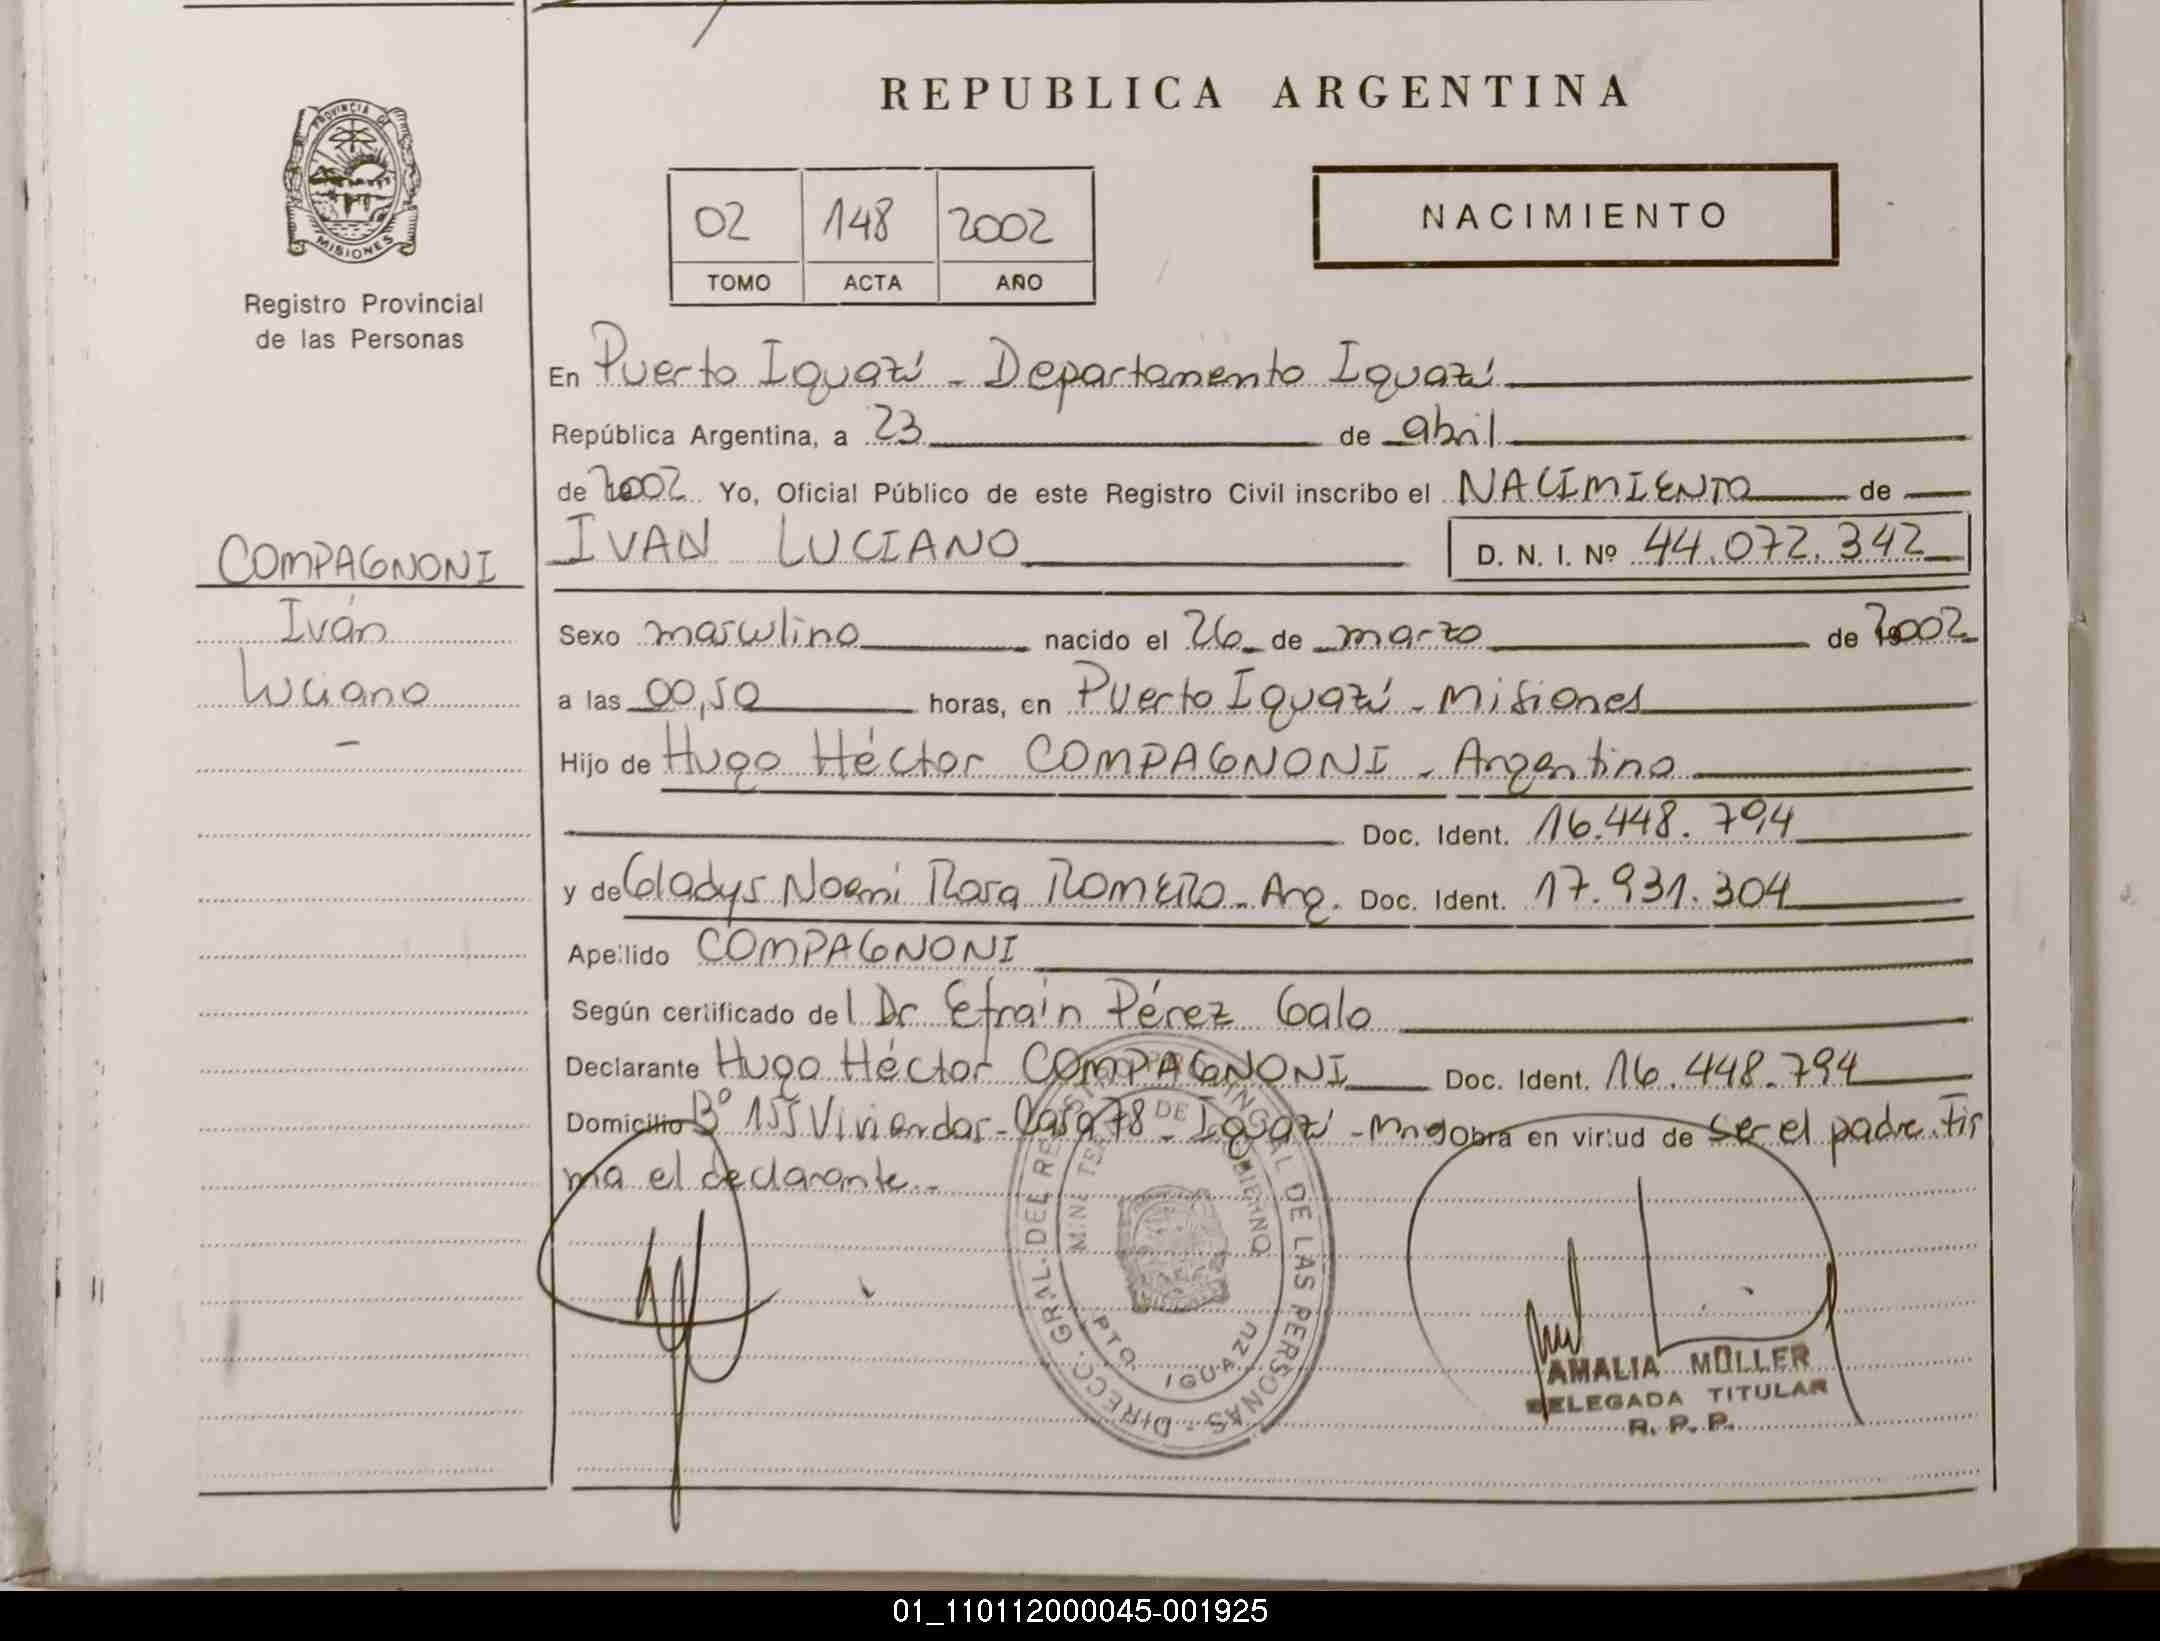 REPUBLICA ARGENTINA
PROVINCIA DE
MISIONES
Registro Provincial
de las Personas
02 148 2002
TOMO ACTA AÑO
NACIMIENTO
En Puerto Iguazú - Departamento Iguazú
República Argentina, a 23 de abril
de 2002 Yo, Oficial Público de este Registro Civil inscribo el NACIMIENTO de
COMPAGNONI
Iván
Luciano
-
IVAN LUCIANO D. N. I. Nº 44.072.342
Sexo masculino nacido el 26 de marzo de 2002
a las 00,50 horas, en Puerto Iguazú - Misiones
Hijo de Hugo Héctor COMPAGNONI - Argentino
Doc. Ident. 16.448.794
y de Gladys Noemi Rosa ROMERO - Arg. Doc. Ident. 17.931.304
Apellido COMPAGNONI
Según certificado del Dr Efraín Pérez Galo
Declarante Hugo Héctor COMPAGNONI Doc. Ident. 16.448.794
Domicilio Bº 155 Viviendas - Casa 78 - Iguazú - Mnes Obra en virtud de ser el padre. Fir
ma el declarante.-
DIRECC. GRAL. DEL REGISTRO PROVINCIAL DE LAS PERSONAS
MINISTERIO DE GOBIERNO
PTO. IGUAZU
AMALIA MÜLLER
DELEGADA TITULAR
R. P. P.
01_110112000045-001925